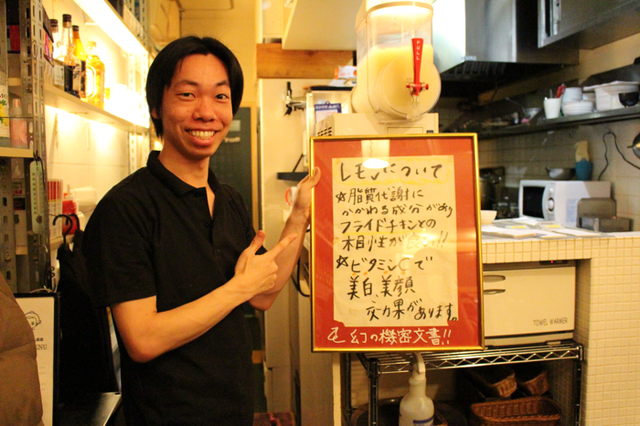 レモンについて
☆脂質代謝に
かかわる成分があり
フライドチキンとの
相性が
☆ビタミンCで
美白、美顔
効果があります。
幻の機密文書!!
TOWEL WARMER